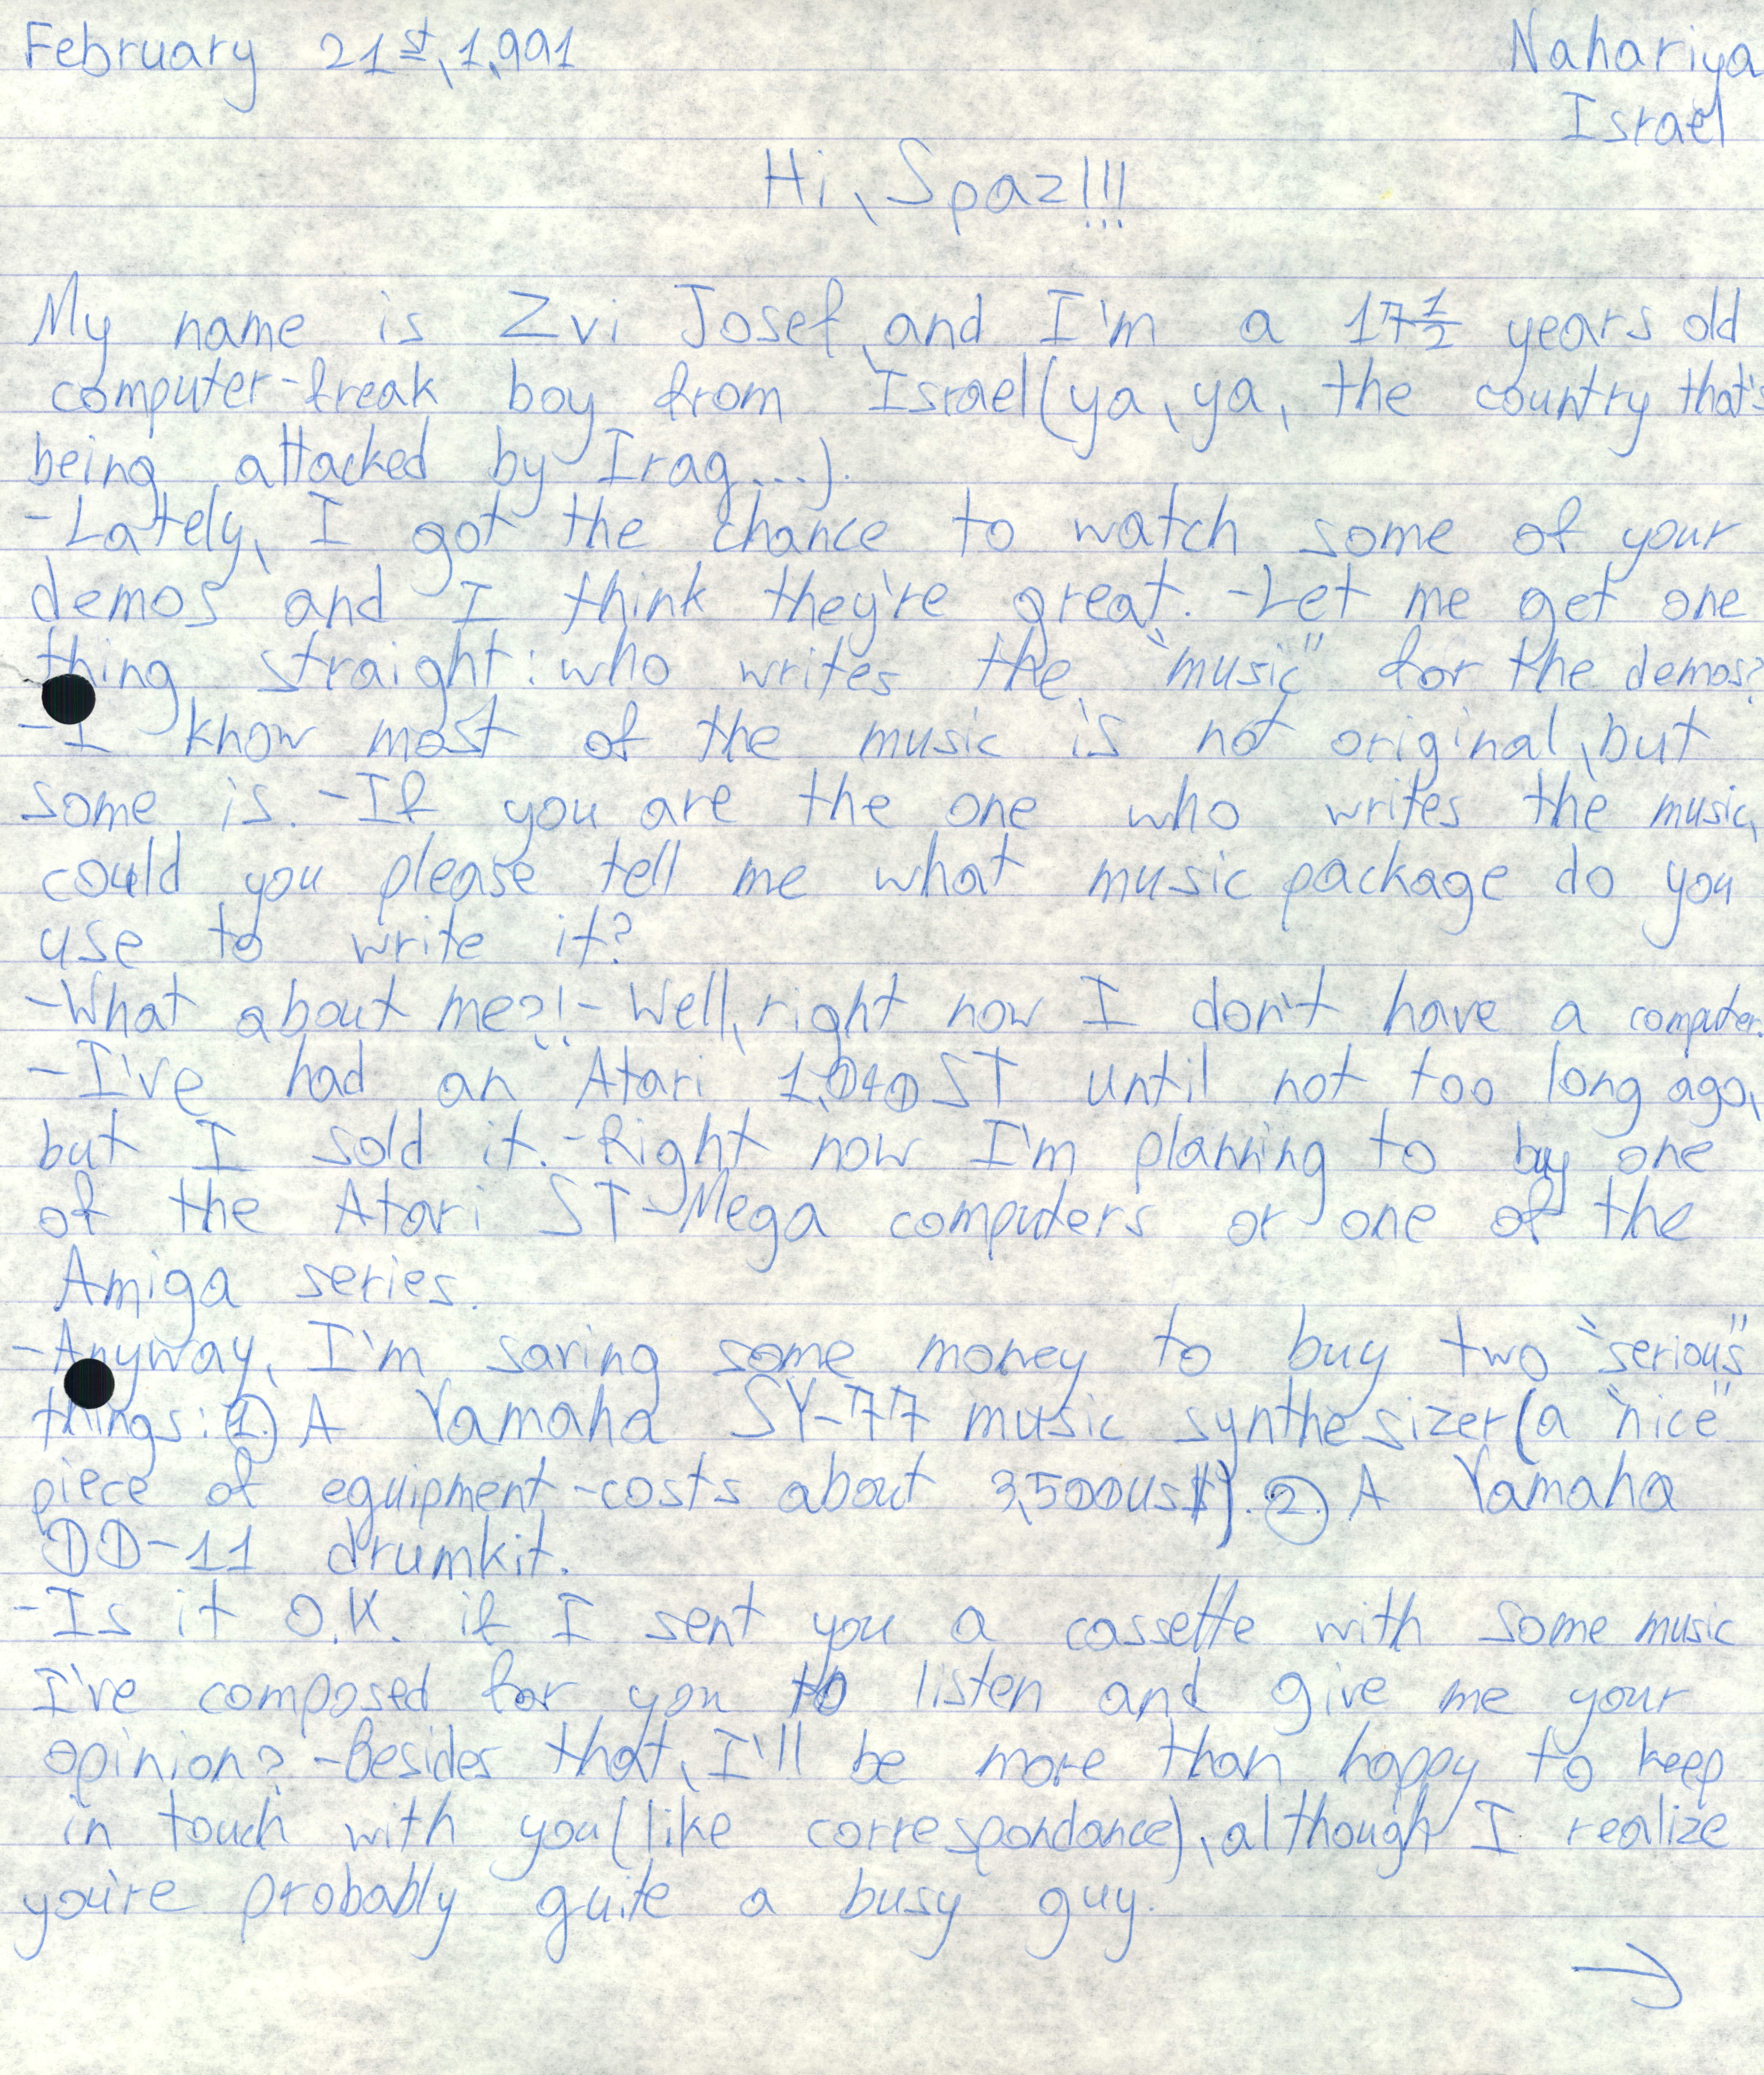 February 21st, 1,991
Nahariya
Israel
Hi, Spaz!!!
My name is Zvi Josef, and I'm a 17 1/2 years old
computer-freak boy from Israel (ya, ya, the country that's
being attacked by Iraq...).
-Lately, I got the chance to watch some of your
demos and I think they're great. -Let me get one
thing straight: who writes the "music" for the demos?
-I know most of the music is not original, but
some is. -If you are the one who writes the music,
could you please tell me what music package do you
use to write it?
-What about me?!- Well, right now I don't have a computer.
-I've had an "Atari 1,040 ST until not too long ago,
but I sold it. -Right now I'm planning to buy one
of the Atari ST-Mega computers or one of the
Amiga series.
-Anyway, I'm saving some money to buy two "serious"
things: 1. A Yamaha SY-77 music synthesizer (a "nice"
piece of equipment-costs about 3,500US$). 2. A Yamaha
DD-11 drumkit.
-Is it O.K. if I sent you a cassette with some music
I've composed for you to listen and give me your
opinion? -Besides that, I'll be more than happy to keep
in touch with you (like correspondance), although I realize
you're probably quite a busy guy.
→